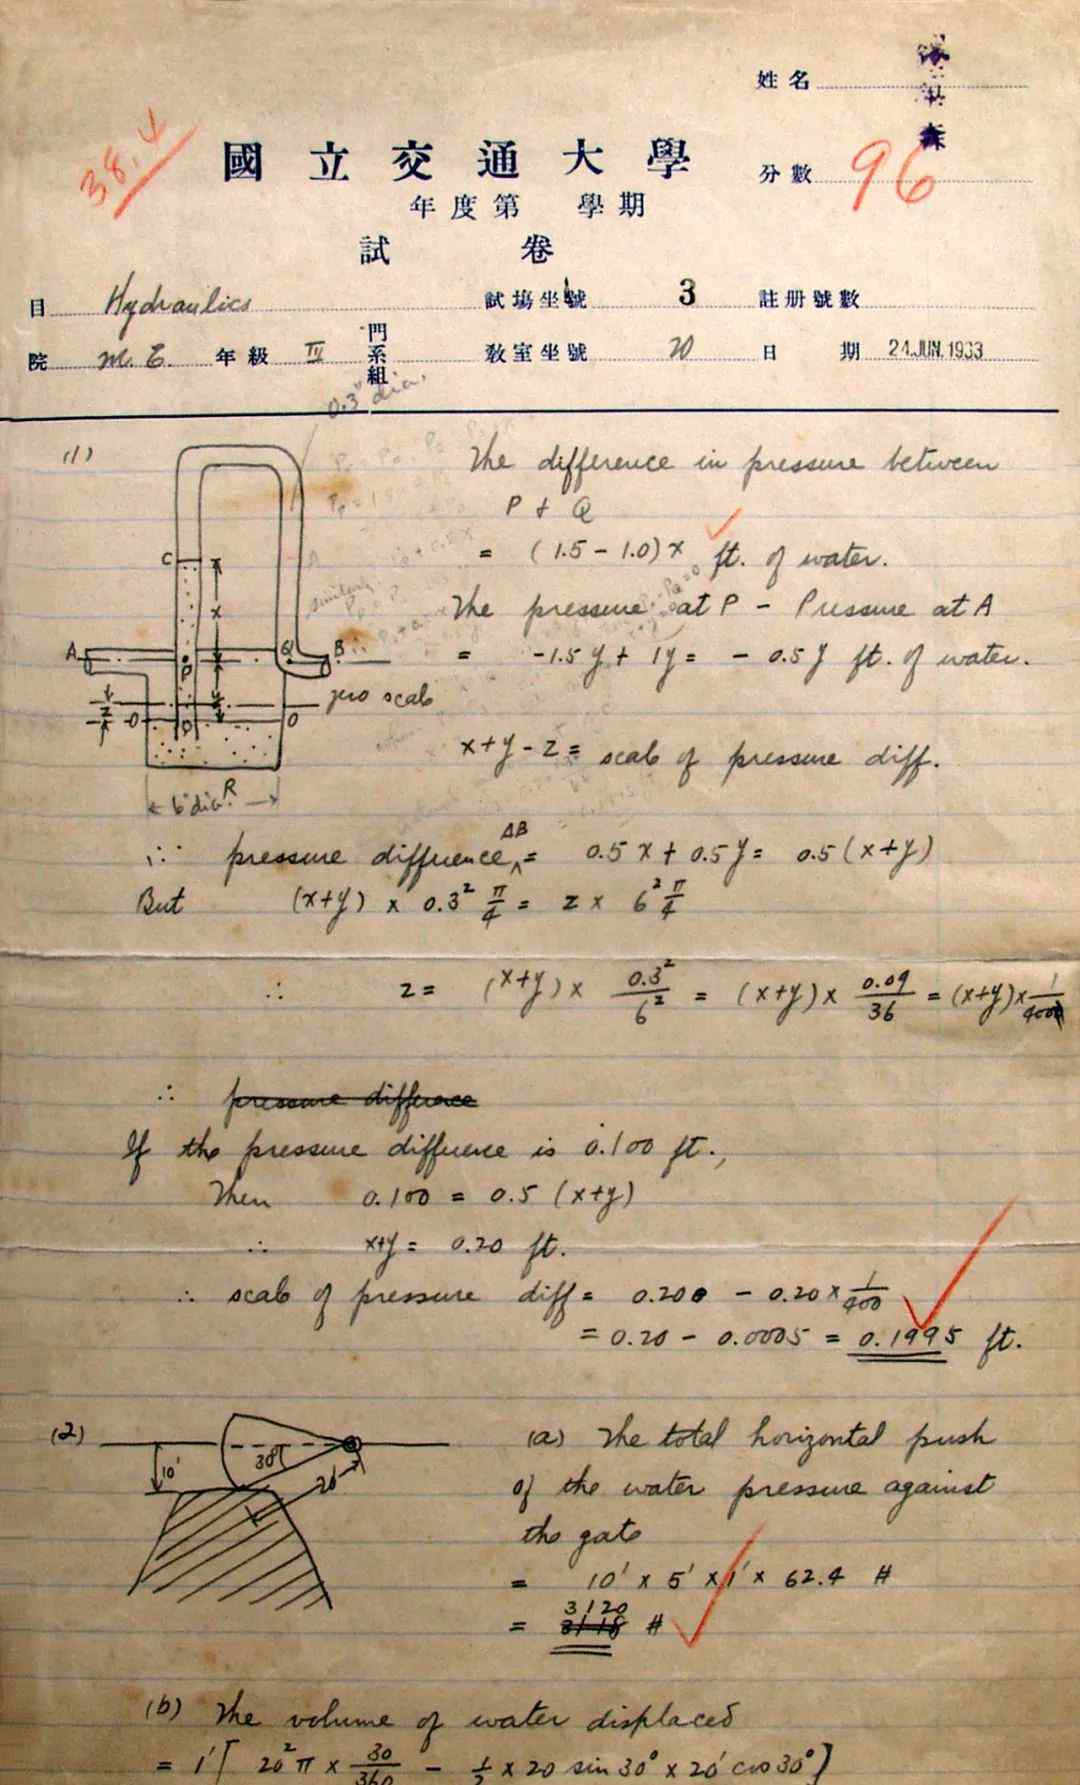 姓名
38.4
國立交通大學
分數 96
年度第 學期
試卷
目 Hydraulics 試場坐號 3 註册號數
院 M.E. 年級 IV 門系組 教室坐號 20 日期 24.JUN.1933
0.3" dia.
(1)
The difference in pressure between
P + Q
= (1.5 - 1.0) x ft. of water.
The pressure at P - Pressure at A
= -1.5 y + 1y = - 0.5 y ft. of water.
C
x
A P Q B
y
z -O O zero scale
D
R
6" dia.
x+y-z = scale of pressure diff.
∴ pressure difference AB = 0.5 x + 0.5 y = 0.5 (x+y)
But (x+y) x 0.3² π/4 = z x 6² π/4
∴ z = (x+y) x 0.3²/6² = (x+y) x 0.09/36 = (x+y) x 1/400
∴ pressure difference
If the pressure difference is 0.100 ft.,
Then 0.100 = 0.5 (x+y)
∴ x+y = 0.20 ft.
∴ scale of pressure diff = 0.200 - 0.20 x 1/400
= 0.20 - 0.0005 = 0.1995 ft.
(2)
30°
10'
20'
(a) The total horizontal push
of the water pressure against
the gate
= 10' x 5' x 1' x 62.4 #
= 3120 #
(b) The volume of water displaced
= 1' [ 20² π x 30/360 - 1/2 x 20 sin 30° x 20' cos 30° ]